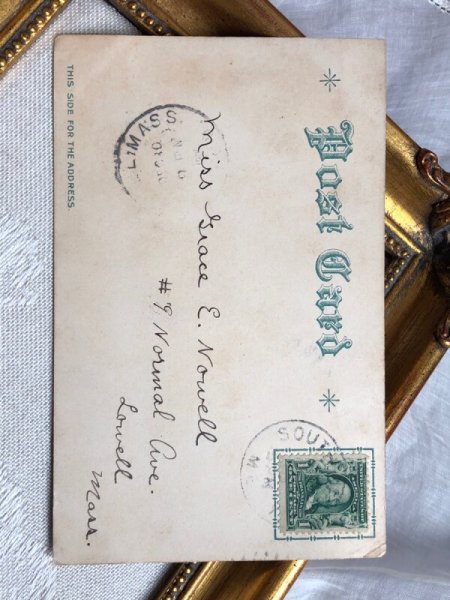 Post Card
THIS SIDE FOR THE ADDRESS
MASS
SOUT
Miss Grace E. Nowell
#9 Normal Ave.
Lowell
Mass.